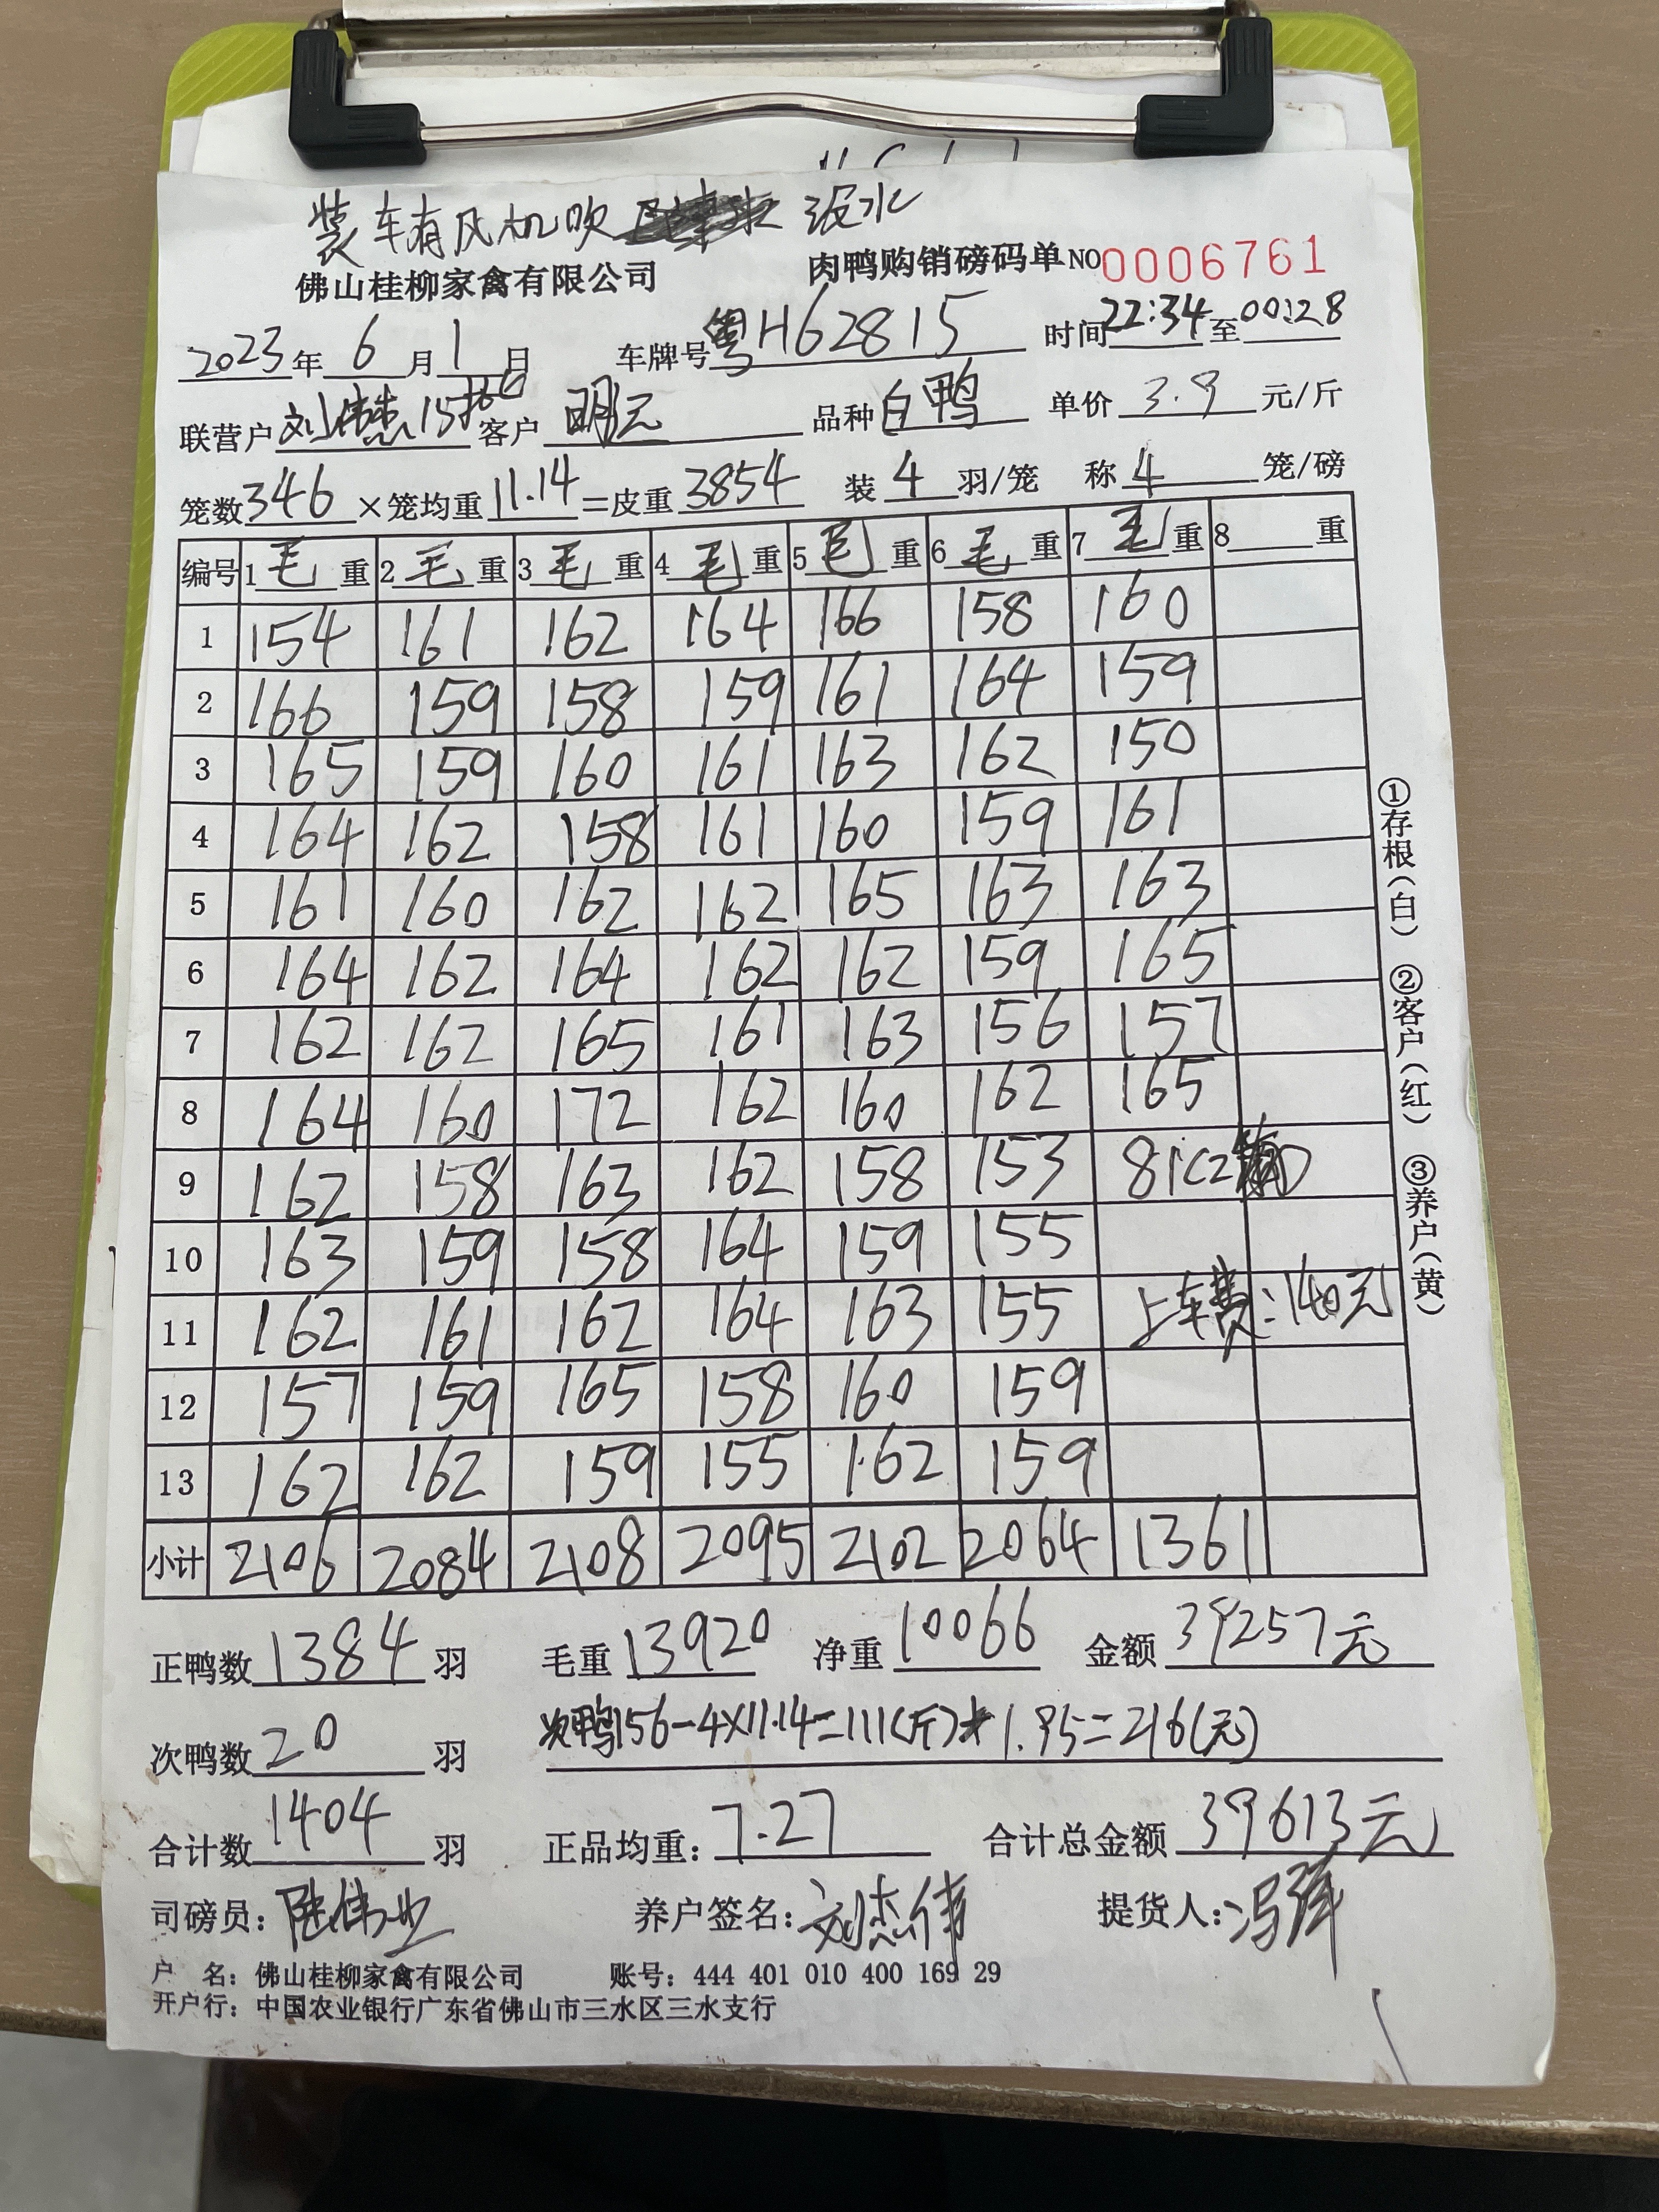 装车有风机吹 没水
佛山桂柳家禽有限公司 肉鸭购销磅码单 NO 0006761
2023年 6月1日 车牌号 粤H62815 时间 22:34 至 00:28
联营户 刘伟杰 15 客户 明元 品种 白鸭 单价 3.9 元/斤
笼数 346 ×笼均重 11.14 =皮重 3854 装 4 羽/笼 称 4 笼/磅
编号 1 毛 重 2 毛 重 3 毛 重 4 毛 重 5 毛 重 6 毛 重 7 毛 重 8 重
1 154 161 162 164 166 158 160
2 166 159 158 159 161 164 159
3 165 159 160 161 163 162 150
4 164 162 158 161 160 159 161
5 161 160 162 162 165 163 163
6 164 162 164 162 162 159 165
7 162 162 165 161 163 156 157
8 164 160 172 162 160 162 165
9 162 158 163 162 158 153 81(2
10 163 159 158 164 159 155
11 162 161 162 164 163 155 上车费:140元
12 157 159 165 158 160 159
13 162 162 159 155 162 159
小计 2106 2084 2108 2095 2102 2064 1361
正鸭数 1384 羽 毛重 13920 净重 10066 金额 39257元
次鸭数 20 羽 次鸭156-4×11.14=111(斤)*1.95=216(元)
合计数 1404 羽 正品均重: 7.27 合计总金额 39613元
司磅员: 陆伟业 养户签名: 刘杰伟 提货人: 冯
户 名: 佛山桂柳家禽有限公司 账号: 444 401 010 400 169 29
开户行: 中国农业银行广东省佛山市三水区三水支行
①存根(白) ②客户(红) ③养户(黄)